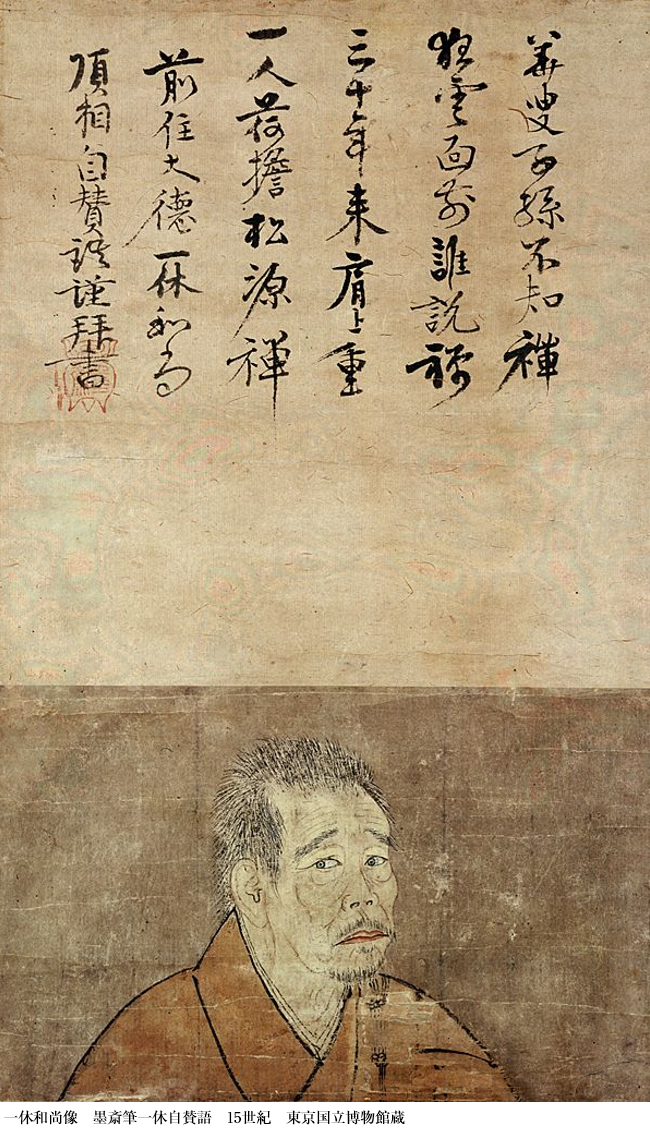 華叟子孫不知禅
狂雲面前誰説禅
三十年来肩上重
一人荷擔松源禅
前住大德一休和尚
頂相自賛 謹拜書
一休和尚像　墨斎筆一休自賛語　15世紀　東京国立博物館蔵